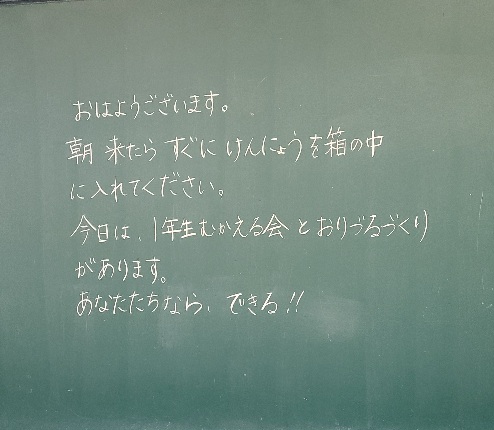 おはようございます。
朝 来たら すぐに けんにょうを箱の中
に入れてください。
今日は、1年生むかえる会 と おりづるづくり
があります。
あなたたちなら、できる!!